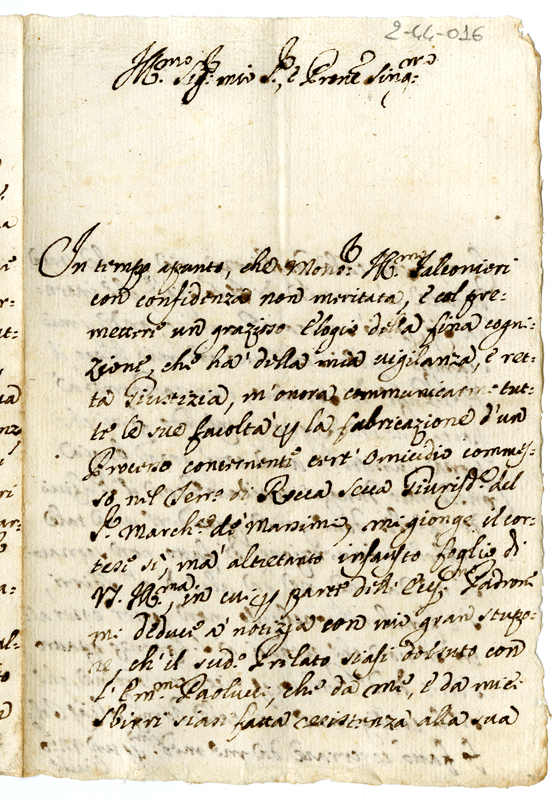 2-44-016
Ill.mo Sig.r mio S.r, e Prone Sing.mo
In tempo apunto, che Mons.r Ill.mo Falconieri
con confidenza non meritata, e col pre-
mettere un grazioso elogio della fina cogni-
zione, che ha' della mia vigilanza, e ret-
ta Giustizia, m'onora communicarme tut-
te le sue facoltà p la fabricazione d'un
Processo concernente cert' omicidio commes-
so nel Terr.o di Rocca secca Giurisd.e del
S.r March.e de Massimi, mi gionge il cor-
tese sì, ma' altretanto infausto foglio di
V.S. Ill.ma, in cui p parte dell' Ecc.mo Padrone
mi deduce a' notizia con mio gran stupo-
re, ch' il sud.o Prelato siasi doluto con
l' Em.mo Paolucci, che da me, e da miei
sbirri siasi fatta resistenza alla sua